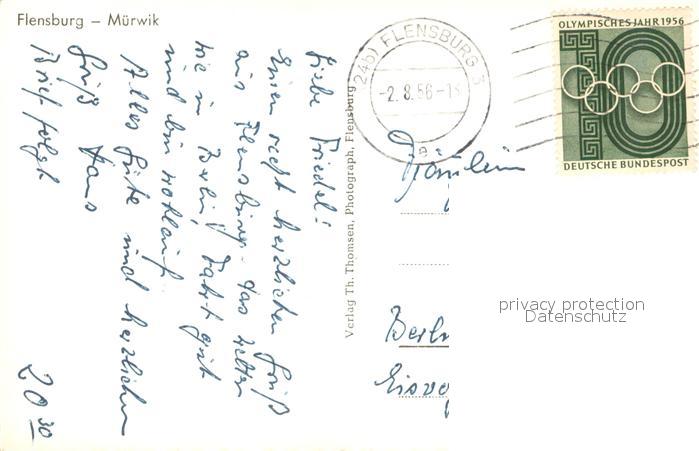 Flensburg – Mürwik
Liebe Friedel!
Einen recht herzlichen Gruß
aus Flensburg. Das Wetter
wie in Berlin, Fahrt gut
und bin wohlauf.
Alles Gute und herzlichen
Gruß Hans
Brief folgt
20³⁰
Verlag Th. Thomsen, Photograph, Flensburg
(24b) FLENSBURG 3
-2.8.56-1
a
OLYMPISCHES JAHR 1956
DEUTSCHE BUNDESPOST
Fräulein
Berlin
privacy protection
Datenschutz